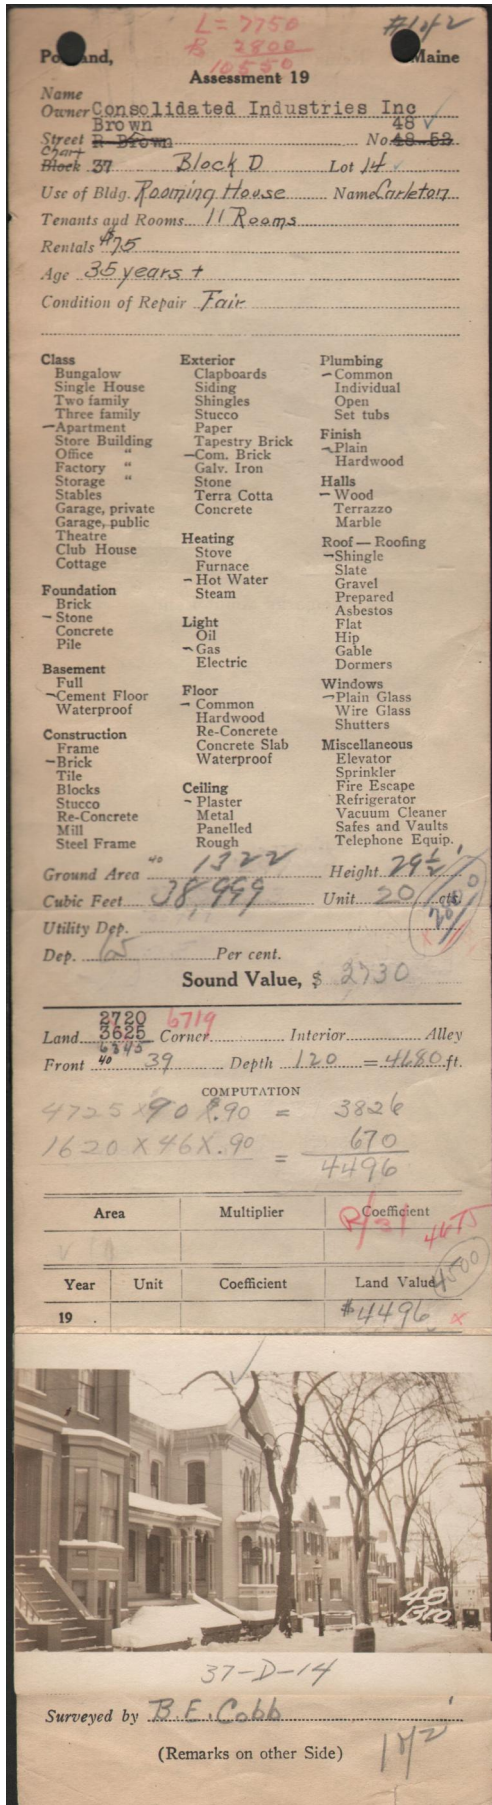 L = 7750
B 2800
10550
#1 of 2
Portland, Maine
Assessment 19
Name
Owner Consolidated Industries Inc
Brown 48 ✓
Street R Brown No. 48-53
Chart
Block 37 Block D Lot 14 ✓
Use of Bldg. Rooming House Name Carleton
Tenants and Rooms 11 Rooms
Rentals $75
Age 35 years +
Condition of Repair Fair
Class
Bungalow
Single House
Two family
Three family
– Apartment
Store Building
Office "
Factory "
Storage "
Stables
Garage, private
Garage, public
Theatre
Club House
Cottage
Foundation
Brick
– Stone
Concrete
Pile
Basement
Full
– Cement Floor
Waterproof
Construction
Frame
– Brick
Tile
Blocks
Stucco
Re-Concrete
Mill
Steel Frame
Exterior
Clapboards
Siding
Shingles
Stucco
Paper
Tapestry Brick
– Com. Brick
Galv. Iron
Stone
Terra Cotta
Concrete
Heating
Stove
Furnace
– Hot Water
Steam
Light
Oil
– Gas
Electric
Floor
– Common
Hardwood
Re-Concrete
Concrete Slab
Waterproof
Ceiling
– Plaster
Metal
Panelled
Rough
Plumbing
– Common
Individual
Open
Set tubs
Finish
– Plain
Hardwood
Halls
– Wood
Terrazzo
Marble
Roof — Roofing
– Shingle
Slate
Gravel
Prepared
Asbestos
Flat
Hip
Gable
Dormers
Windows
– Plain Glass
Wire Glass
Shutters
Miscellaneous
Elevator
Sprinkler
Fire Escape
Refrigerator
Vacuum Cleaner
Safes and Vaults
Telephone Equip.
Ground Area 40 1322 Height 29½
Cubic Feet 38,999 Unit 20 cts.
Utility Dep.
Dep. 65 Per cent.
Sound Value, $ 2730
2720 6719
Land 3625 Corner Interior Alley
Front 40 39 Depth 120 = 4680 ft.
COMPUTATION
4725 x 90 x .90 = 3826
1620 x 46 x .90 = 670
4496
Area Multiplier Coefficient
R/31 4675
Year Unit Coefficient Land Value
4500
19 $4496 x
48
Bro
37-D-14
Surveyed by B.E. Cobb
(Remarks on other Side)
1 of 2